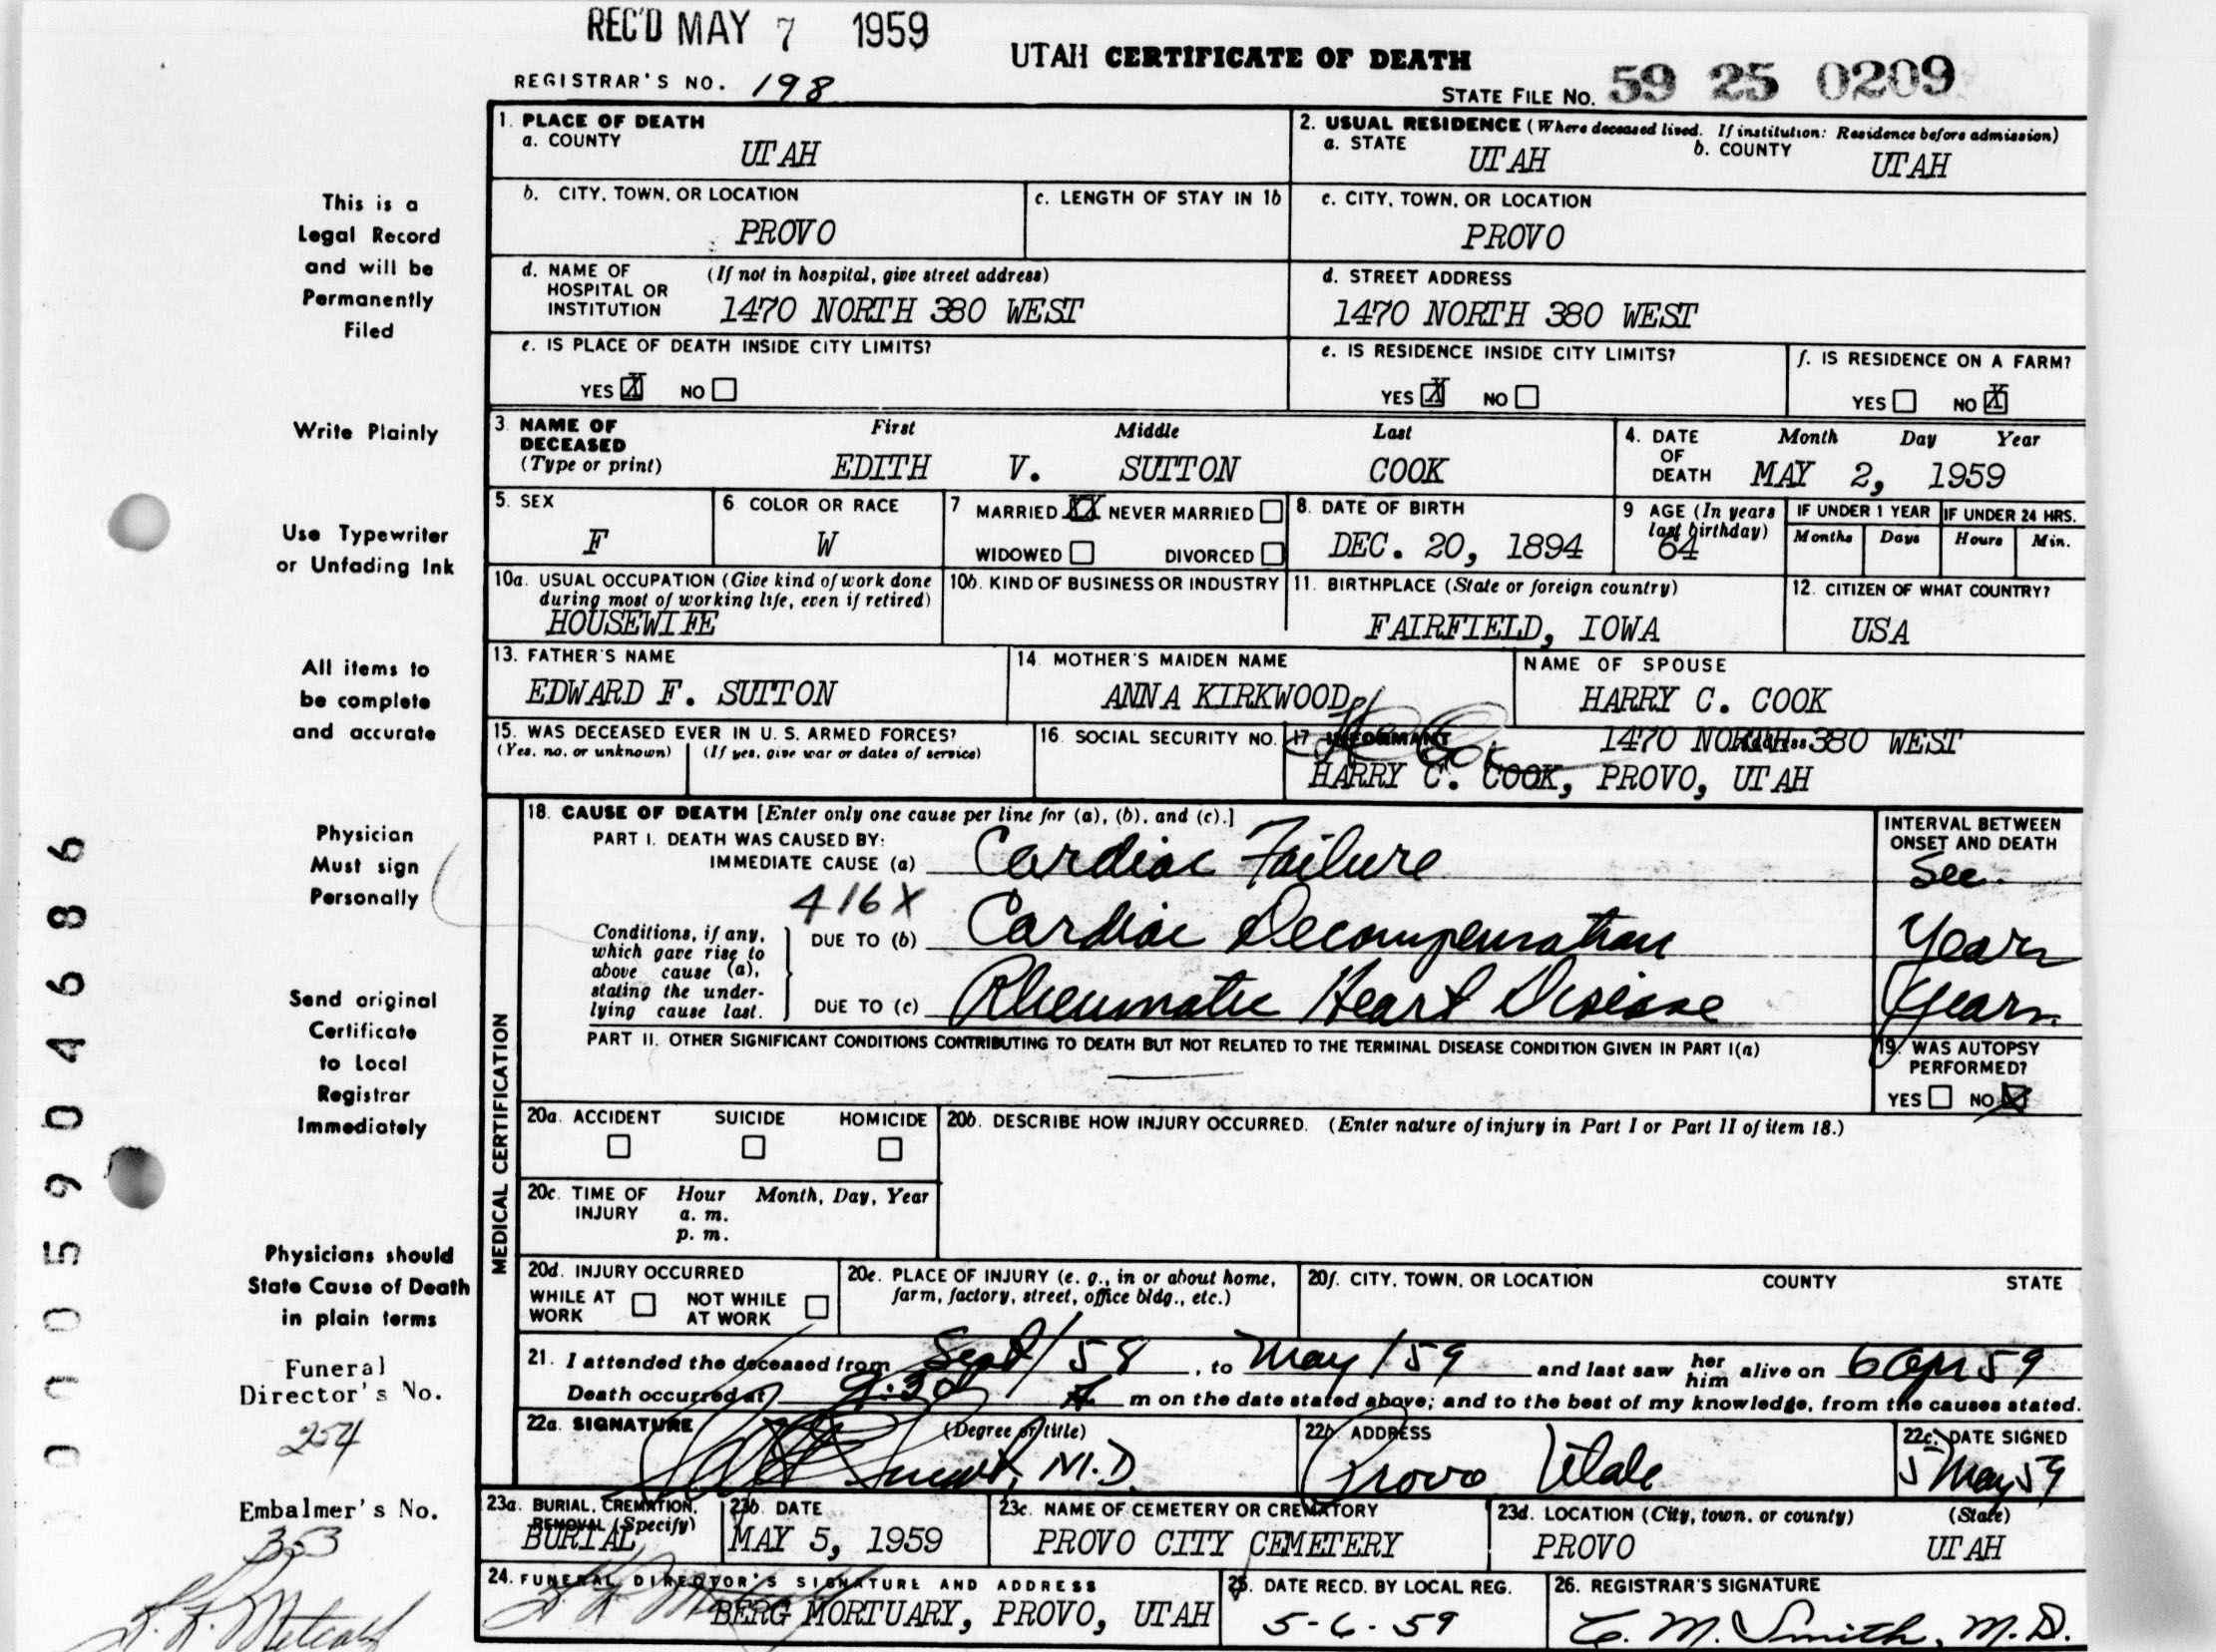 REC'D MAY 7 1959
UTAH CERTIFICATE OF DEATH
REGISTRAR'S NO. 198
STATE FILE NO. 59 25 0209
1. PLACE OF DEATH
a. COUNTY
UTAH
2. USUAL RESIDENCE (Where deceased lived. If institution: Residence before admission)
a. STATE
UTAH
b. COUNTY
UTAH
b. CITY, TOWN, OR LOCATION
PROVO
c. LENGTH OF STAY IN 1b
c. CITY, TOWN, OR LOCATION
PROVO
d. NAME OF HOSPITAL OR INSTITUTION
(If not in hospital, give street address)
1470 NORTH 380 WEST
d. STREET ADDRESS
1470 NORTH 380 WEST
e. IS PLACE OF DEATH INSIDE CITY LIMITS?
YES X NO
e. IS RESIDENCE INSIDE CITY LIMITS?
YES X NO
f. IS RESIDENCE ON A FARM?
YES NO X
3. NAME OF DECEASED (Type or print)
First Middle Last
EDITH V. SUTTON COOK
4. DATE OF DEATH
Month Day Year
MAY 2, 1959
5. SEX
F
6. COLOR OR RACE
W
7 MARRIED XX NEVER MARRIED
WIDOWED DIVORCED
8. DATE OF BIRTH
DEC. 20, 1894
9 AGE (In years last birthday)
64
IF UNDER 1 YEAR
Months Days
IF UNDER 24 HRS.
Hours Min.
10a. USUAL OCCUPATION (Give kind of work done during most of working life, even if retired)
HOUSEWIFE
10b. KIND OF BUSINESS OR INDUSTRY
11. BIRTHPLACE (State or foreign country)
FAIRFIELD, IOWA
12. CITIZEN OF WHAT COUNTRY?
USA
13. FATHER'S NAME
EDWARD F. SUTTON
14. MOTHER'S MAIDEN NAME
ANNA KIRKWOOD
NAME OF SPOUSE
HARRY C. COOK
15. WAS DECEASED EVER IN U. S. ARMED FORCES?
(Yes, no, or unknown) (If yes, give war or dates of service)
16. SOCIAL SECURITY NO.
17. INFORMANT
Address
1470 NORTH 380 WEST
HARRY C. COOK, PROVO, UTAH
MEDICAL CERTIFICATION
18. CAUSE OF DEATH [Enter only one cause per line for (a), (b), and (c).]
PART I. DEATH WAS CAUSED BY:
IMMEDIATE CAUSE (a) Cardiac Failure
416X
Conditions, if any, which gave rise to above cause (a), stating the underlying cause last.
DUE TO (b) Cardiac Decompensation
DUE TO (c) Rheumatic Heart Disease
INTERVAL BETWEEN ONSET AND DEATH
Sec.
Years
Years.
PART II. OTHER SIGNIFICANT CONDITIONS CONTRIBUTING TO DEATH BUT NOT RELATED TO THE TERMINAL DISEASE CONDITION GIVEN IN PART I(a)
19. WAS AUTOPSY PERFORMED?
YES NO X
20a. ACCIDENT SUICIDE HOMICIDE
20b. DESCRIBE HOW INJURY OCCURRED. (Enter nature of injury in Part I or Part II of item 18.)
20c. TIME OF INJURY
Hour Month, Day, Year
a. m.
p. m.
20d. INJURY OCCURRED
WHILE AT WORK NOT WHILE AT WORK
20e. PLACE OF INJURY (e. g., in or about home, farm, factory, street, office bldg., etc.)
20f. CITY, TOWN, OR LOCATION COUNTY STATE
21. I attended the deceased from Sept/58, to May/59 and last saw her him alive on 6 Apr 59
Death occurred at 9:30 m on the date stated above; and to the best of my knowledge, from the causes stated.
22a. SIGNATURE (Degree or title)
M.D.
22b. ADDRESS
Provo Utah
22c. DATE SIGNED
5 May 59
23a. BURIAL, CREMATION, REMOVAL (Specify)
BURIAL
23b. DATE
MAY 5, 1959
23c. NAME OF CEMETERY OR CREMATORY
PROVO CITY CEMETERY
23d. LOCATION (City, town, or county) (State)
PROVO UTAH
24. FUNERAL DIRECTOR'S SIGNATURE AND ADDRESS
BERG MORTUARY, PROVO, UTAH
25. DATE RECD. BY LOCAL REG.
5-6-59
26. REGISTRAR'S SIGNATURE
C. M. Smith, M.D.
This is a
Legal Record
and will be
Permanently
Filed
Write Plainly
Use Typewriter
or Unfading Ink
All items to
be complete
and accurate
Physician
Must sign
Personally
Send original
Certificate
to Local
Registrar
Immediately
Physicians should
State Cause of Death
in plain terms
Funeral
Director's No.
254
Embalmer's No.
353
Metcalf
0005904686